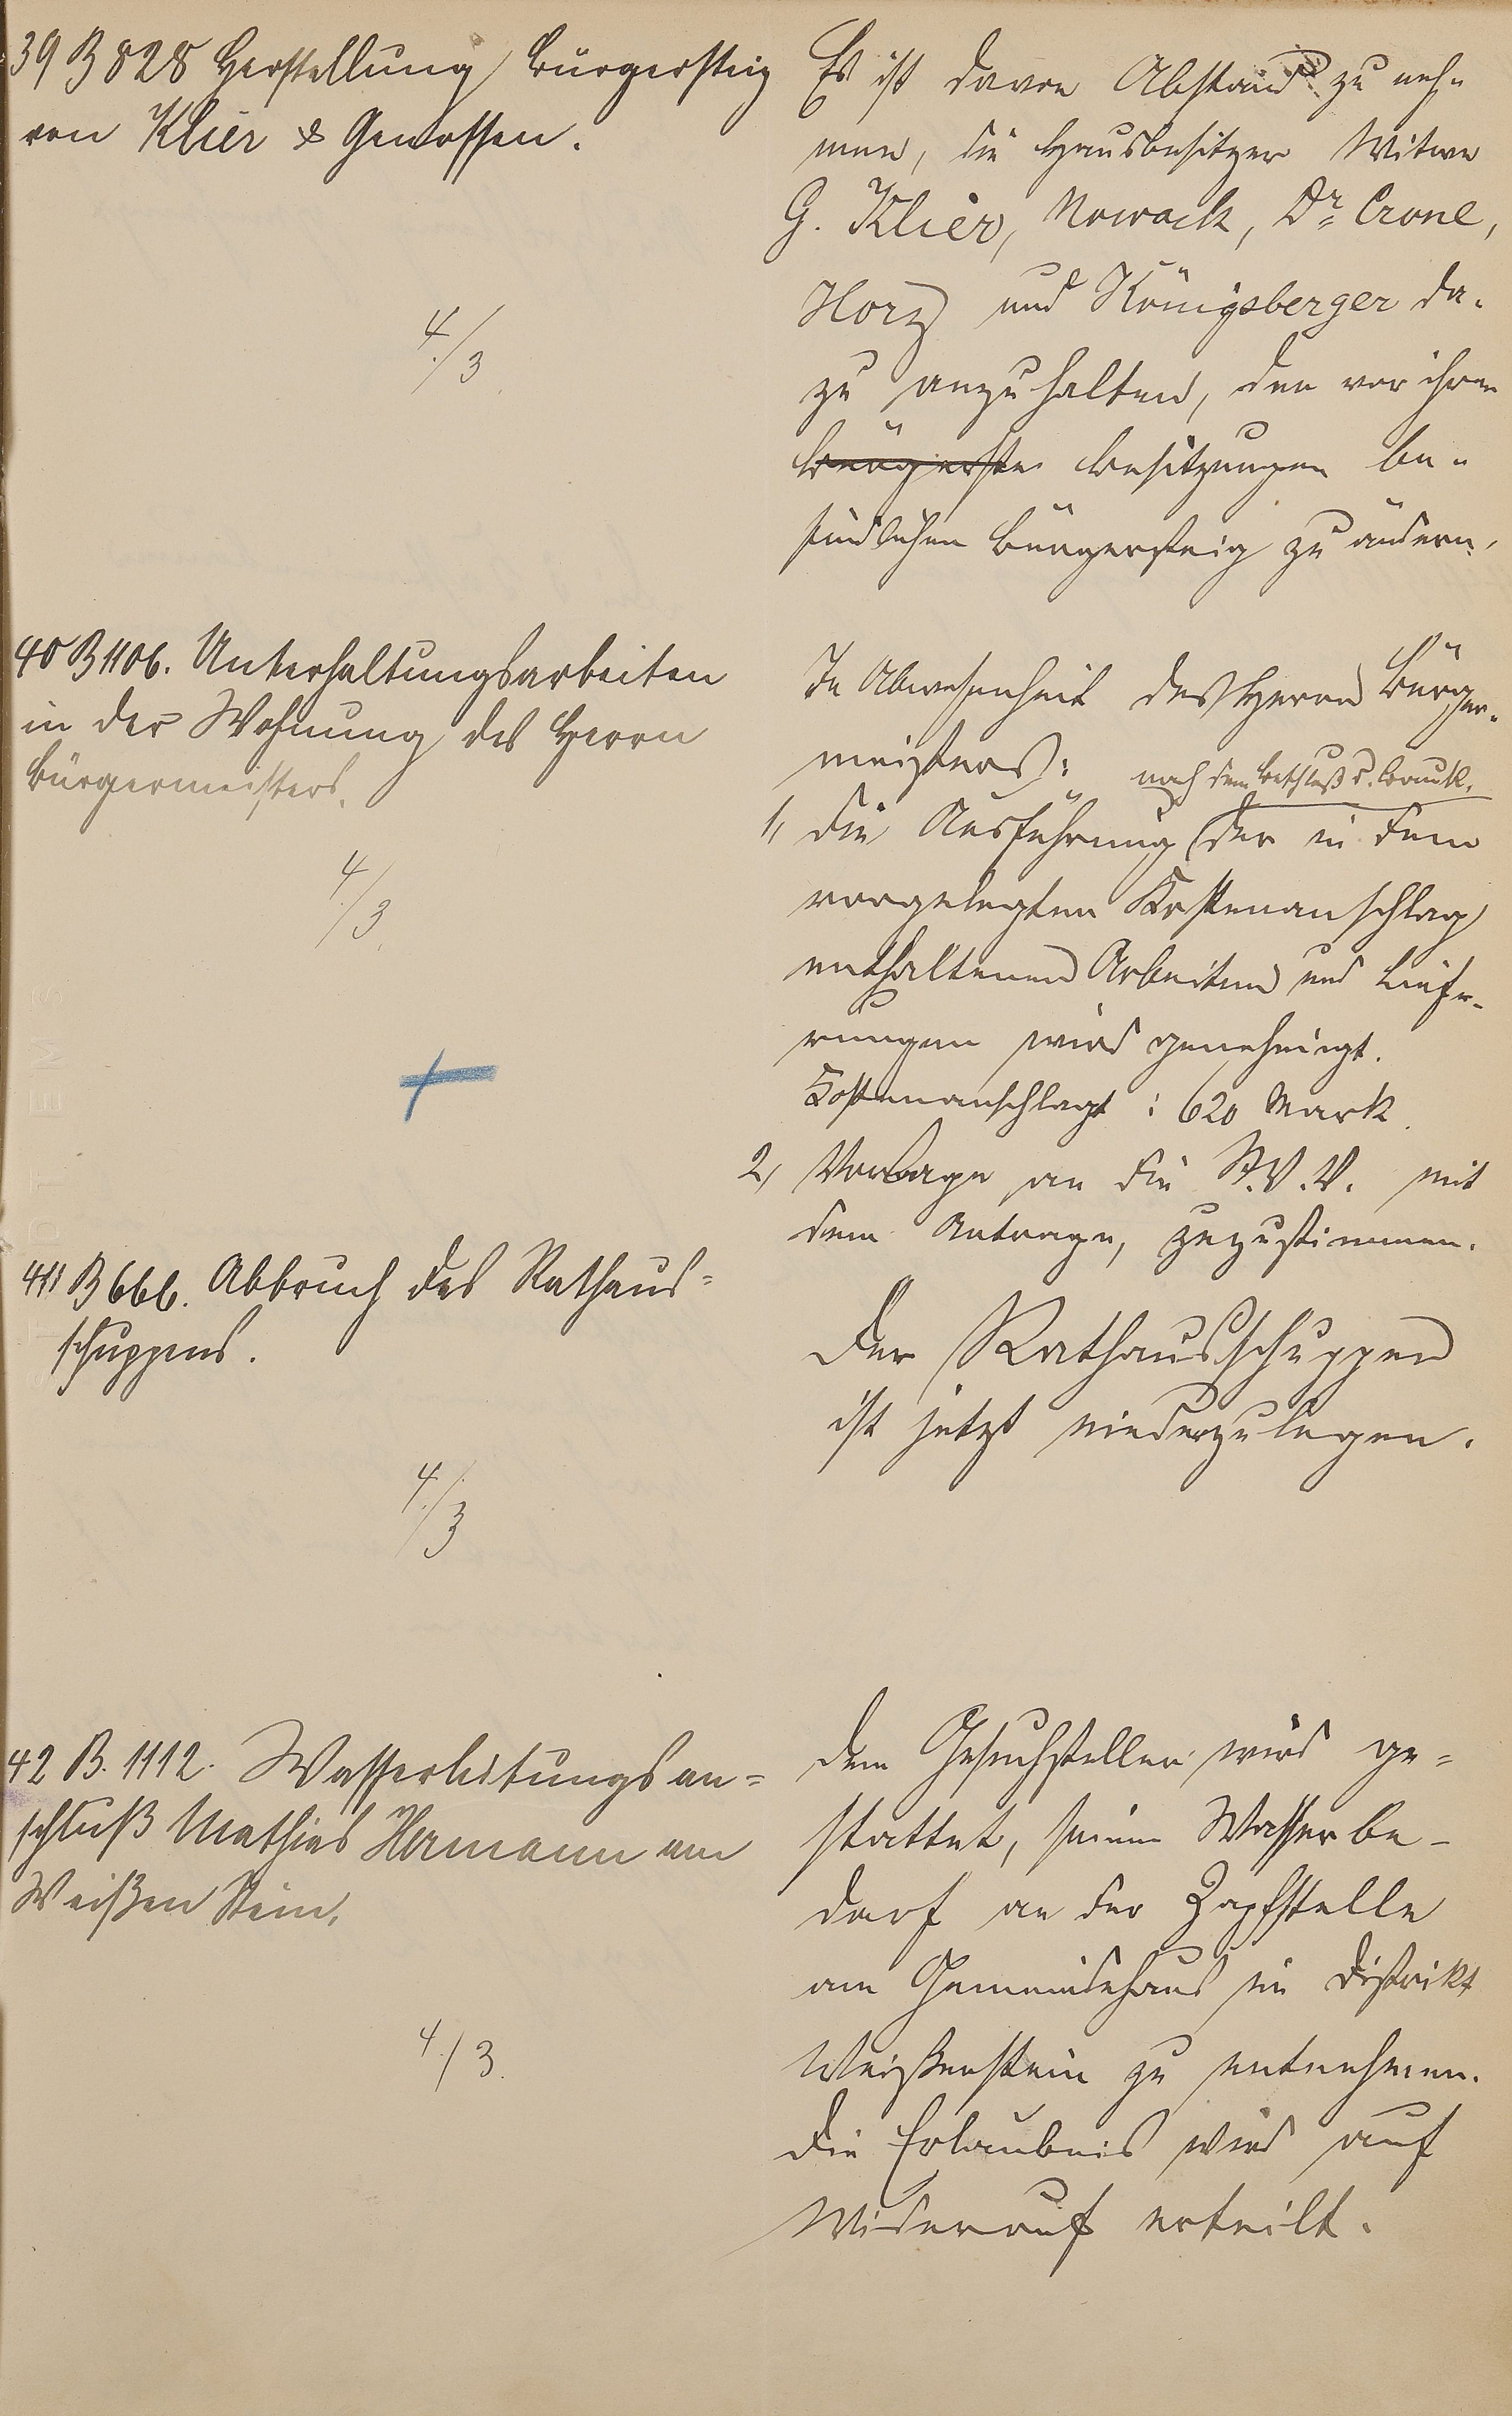 39 B 828 Herstellung Bürgersteig
von Klier & Genossen.
4./3.
Es ist davon Abstand zu neh-
men, die Hausbesitzer Witwe
G. Klier, Nowack, Dr. Crone,
Horz und Königsberger da-
zu anzuhalten, den vor ihren
Bürgerste Besitzungen be-
findlichen Bürgersteig zu ändern.
40 B 1106. Unterhaltungsarbeiten
in der Wohnung des Herrn
Bürgermeisters.
4./3.
In Abwesenheit des Herrn Bürger-
meisters:
nach dem Beschluß d.
1, Die Ausführung der in dem
vorgelegten Kostenanschlag
enthaltenen Arbeiten und Liefe-
rungen wird genehmigt.
Kostenanschlag: 620 Mark.
2, Vorlage an die St. V. V. mit
dem Antrage, zuzustimmen.
41 B 666. Abbruch des Rathaus-
schuppens.
4./3
Der Rathausschuppen
ist jetzt niederzulegen.
42 B. 1112. Wasserleitungsan-
schluß Mathies Hermann am
Weißen Stein.
4./3.
Dem Gesuchsteller wird ge-
stattet, seinen Wasserbe-
darf an der Zapfstelle
am Gemeindehaus im Distrikt
Weißenstein zu entnehmen.
Die Erlaubnis wird auf
Widerruf erteilt.